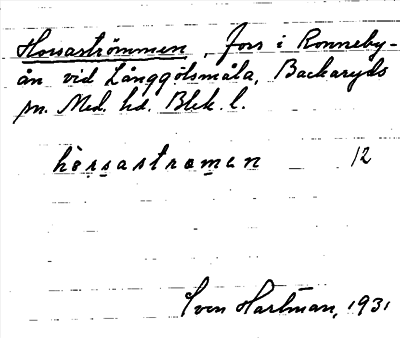 Horsaströmmen, fors i Ronneby-
ån vid Långgölsmåla, Backaryds
sn. Med. hd. Blek. l.
hòrsastramen 12
Sven Hartman, 1931